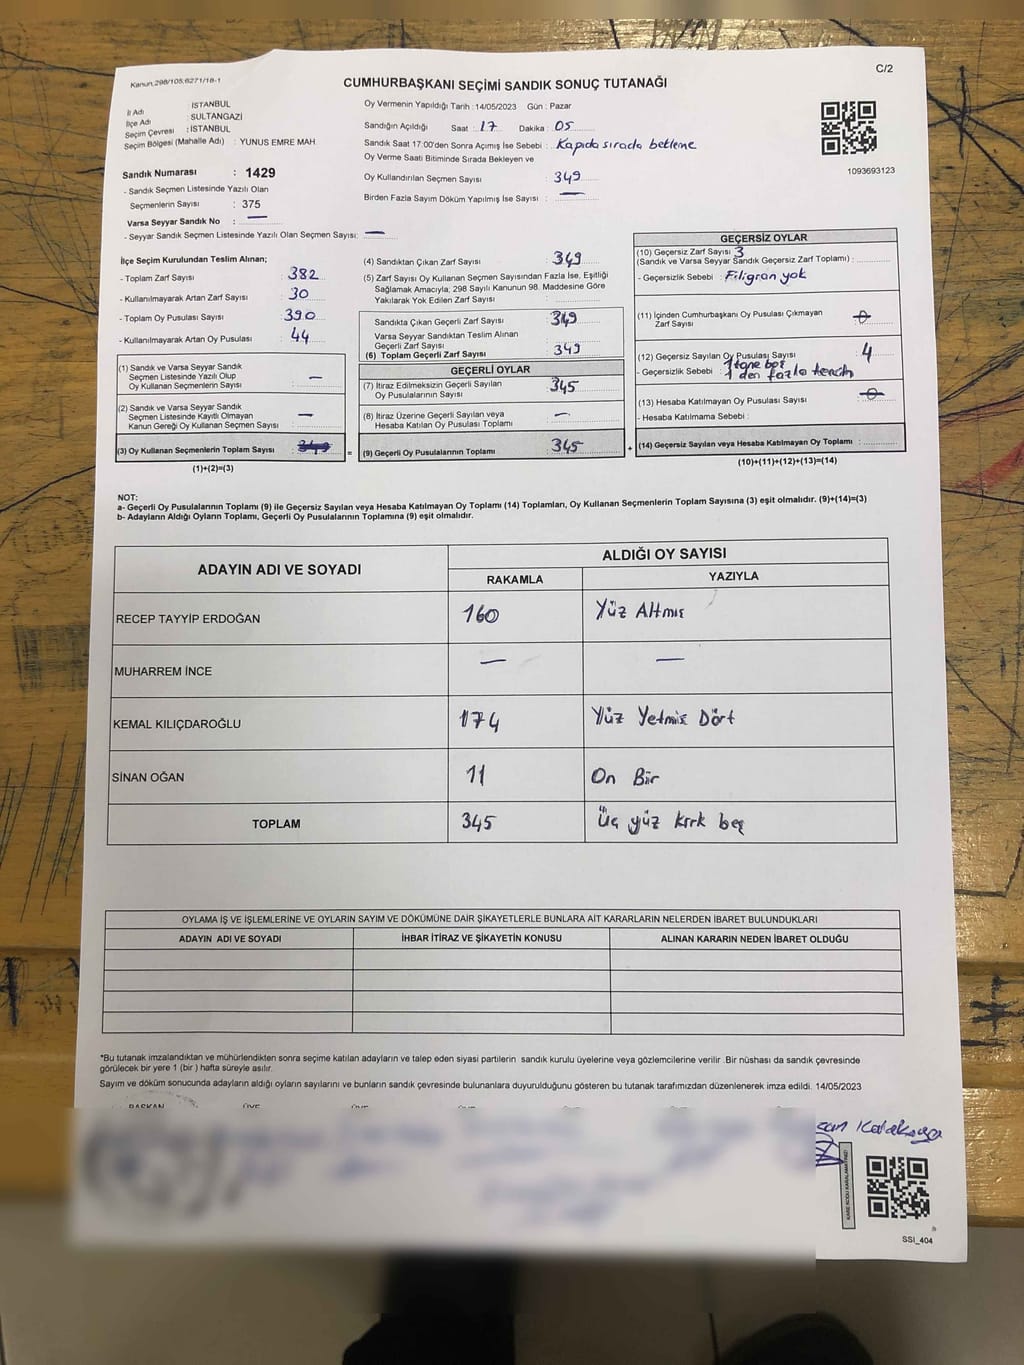 Kanun.298/105;6271/18-1
C/2
CUMHURBAŞKANI SEÇİMİ SANDIK SONUÇ TUTANAĞI
İl Adı : İSTANBUL
İlçe Adı : SULTANGAZİ
Seçim Çevresi : İSTANBUL
Seçim Bölgesi (Mahalle Adı) : YUNUS EMRE MAH
Sandık Numarası : 1429
- Sandık Seçmen Listesinde Yazılı Olan
Seçmenlerin Sayısı : 375
Varsa Seyyar Sandık No : —
- Seyyar Sandık Seçmen Listesinde Yazılı Olan Seçmen Sayısı: —
Oy Vermenin Yapıldığı Tarih : 14/05/2023 Gün : Pazar
Sandığın Açıldığı Saat : 17 Dakika : 05
Sandık Saat 17.00'den Sonra Açımış İse Sebebi : Kapıda sırada bekleme
Oy Verme Saati Bitiminde Sırada Bekleyen ve
Oy Kullandırılan Seçmen Sayısı : 349
Birden Fazla Sayım Döküm Yapılmış İse Sayısı : —
1093693123
İlçe Seçim Kurulundan Teslim Alınan;
- Toplam Zarf Sayısı : 382
- Kullanılmayarak Artan Zarf Sayısı : 30
- Toplam Oy Pusulası Sayısı : 390
- Kullanılmayarak Artan Oy Pusulası : 44
(1) Sandık ve Varsa Seyyar Sandık
Seçmen Listesinde Yazılı Olup
Oy Kullanan Seçmenlerin Sayısı : —
(2) Sandık ve Varsa Seyyar Sandık
Seçmen Listesinde Kayıtlı Olmayan
Kanun Gereği Oy Kullanan Seçmen Sayısı : —
(3) Oy Kullanan Seçmenlerin Toplam Sayısı : 349 =
(1)+(2)=(3)
(4) Sandıktan Çıkan Zarf Sayısı : 349
(5) Zarf Sayısı Oy Kullanan Seçmen Sayısından Fazla İse, Eşitliği
Sağlamak Amacıyla; 298 Sayılı Kanunun 98. Maddesine Göre
Yakılarak Yok Edilen Zarf Sayısı :
Sandıkta Çıkan Geçerli Zarf Sayısı : 349
Varsa Seyyar Sandıktan Teslim Alınan
Geçerli Zarf Sayısı :
(6) Toplam Geçerli Zarf Sayısı : 349
GEÇERLİ OYLAR
(7) İtiraz Edilmeksizin Geçerli Sayılan
Oy Pusulalarının Sayısı : 345
(8) İtiraz Üzerine Geçerli Sayılan veya
Hesaba Katılan Oy Pusulası Toplamı : —
(9) Geçerli Oy Pusulalarının Toplamı : 345 +
GEÇERSİZ OYLAR
(10) Geçersiz Zarf Sayısı 3
(Sandık ve Varsa Seyyar Sandık Geçersiz Zarf Toplamı) :
- Geçersizlik Sebebi : Filigran yok
(11) İçinden Cumhurbaşkanı Oy Pusulası Çıkmayan
Zarf Sayısı : 0
(12) Geçersiz Sayılan Oy Pusulası Sayısı : 4
- Geçersizlik Sebebi : 1 tane boş
1 den fazla tercih
(13) Hesaba Katılmayan Oy Pusulası Sayısı : 0
- Hesaba Katılmama Sebebi :
(14) Geçersiz Sayılan veya Hesaba Katılmayan Oy Toplamı :
(10)+(11)+(12)+(13)=(14)
NOT:
a- Geçerli Oy Pusulalarının Toplamı (9) ile Geçersiz Sayılan veya Hesaba Katılmayan Oy Toplamı (14) Toplamları, Oy Kullanan Seçmenlerin Toplam Sayısına (3) eşit olmalıdır. (9)+(14)=(3)
b- Adayların Aldığı Oyların Toplamı, Geçerli Oy Pusulalarının Toplamına (9) eşit olmalıdır.
ADAYIN ADI VE SOYADI
ALDIĞI OY SAYISI
RAKAMLA YAZIYLA
RECEP TAYYİP ERDOĞAN 160 Yüz Altmış
MUHARREM İNCE — —
KEMAL KILIÇDAROĞLU 174 Yüz Yetmiş Dört
SİNAN OĞAN 11 On Bir
TOPLAM 345 Üç yüz kırk beş
OYLAMA İŞ VE İŞLEMLERİNE VE OYLARIN SAYIM VE DÖKÜMÜNE DAİR ŞİKAYETLERLE BUNLARA AİT KARARLARIN NELERDEN İBARET BULUNDUKLARI
ADAYIN ADI VE SOYADI İHBAR İTİRAZ VE ŞİKAYETİN KONUSU ALINAN KARARIN NEDEN İBARET OLDUĞU
*Bu tutanak imzalandıktan ve mühürlendikten sonra seçime katılan adayların ve talep eden siyasi partilerin sandık kurulu üyelerine veya gözlemcilerine verilir .Bir nüshası da sandık çevresinde
görülecek bir yere 1 (bir ) hafta süreyle asılır.
Sayım ve döküm sonucunda adayların aldığı oyların sayılarını ve bunların sandık çevresinde bulunanlara duyurulduğunu gösteren bu tutanak tarafımızdan düzenlenerek imza edildi. 14/05/2023
BAŞKAN ÜYE
KARE KODU KARALAMAYINIZ!
SSI_404